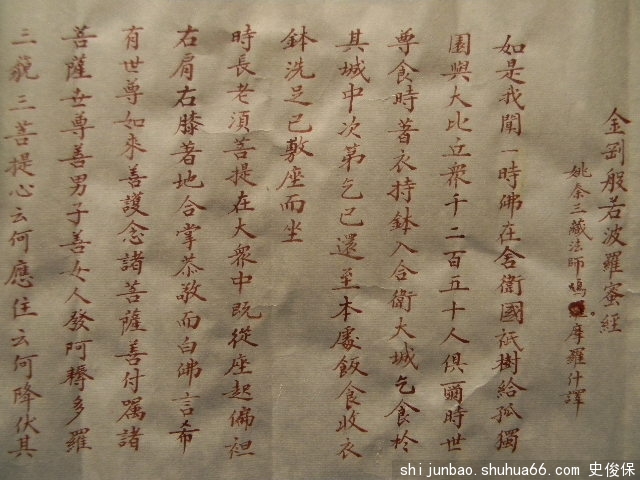 金剛般若波羅蜜經
姚秦三藏法師鳩摩羅什譯
如是我聞一時佛在舍衛國祇樹給孤獨
園與大比丘衆千二百五十人俱爾時世
尊食時著衣持鉢入合衛大城乞食於
其城中次第乞已還至本處飯食收衣
鉢洗足已敷座而坐
時長老須菩提在大衆中既從座起偏袒
右肩右膝著地合掌恭敬而白佛言希
有世尊如來善護念諸菩薩善付囑諸
菩薩世尊善男子善女人發阿耨多羅
三藐三菩提心云何應住云何降伏其
shijunbao.shuhua66.com 史俊保